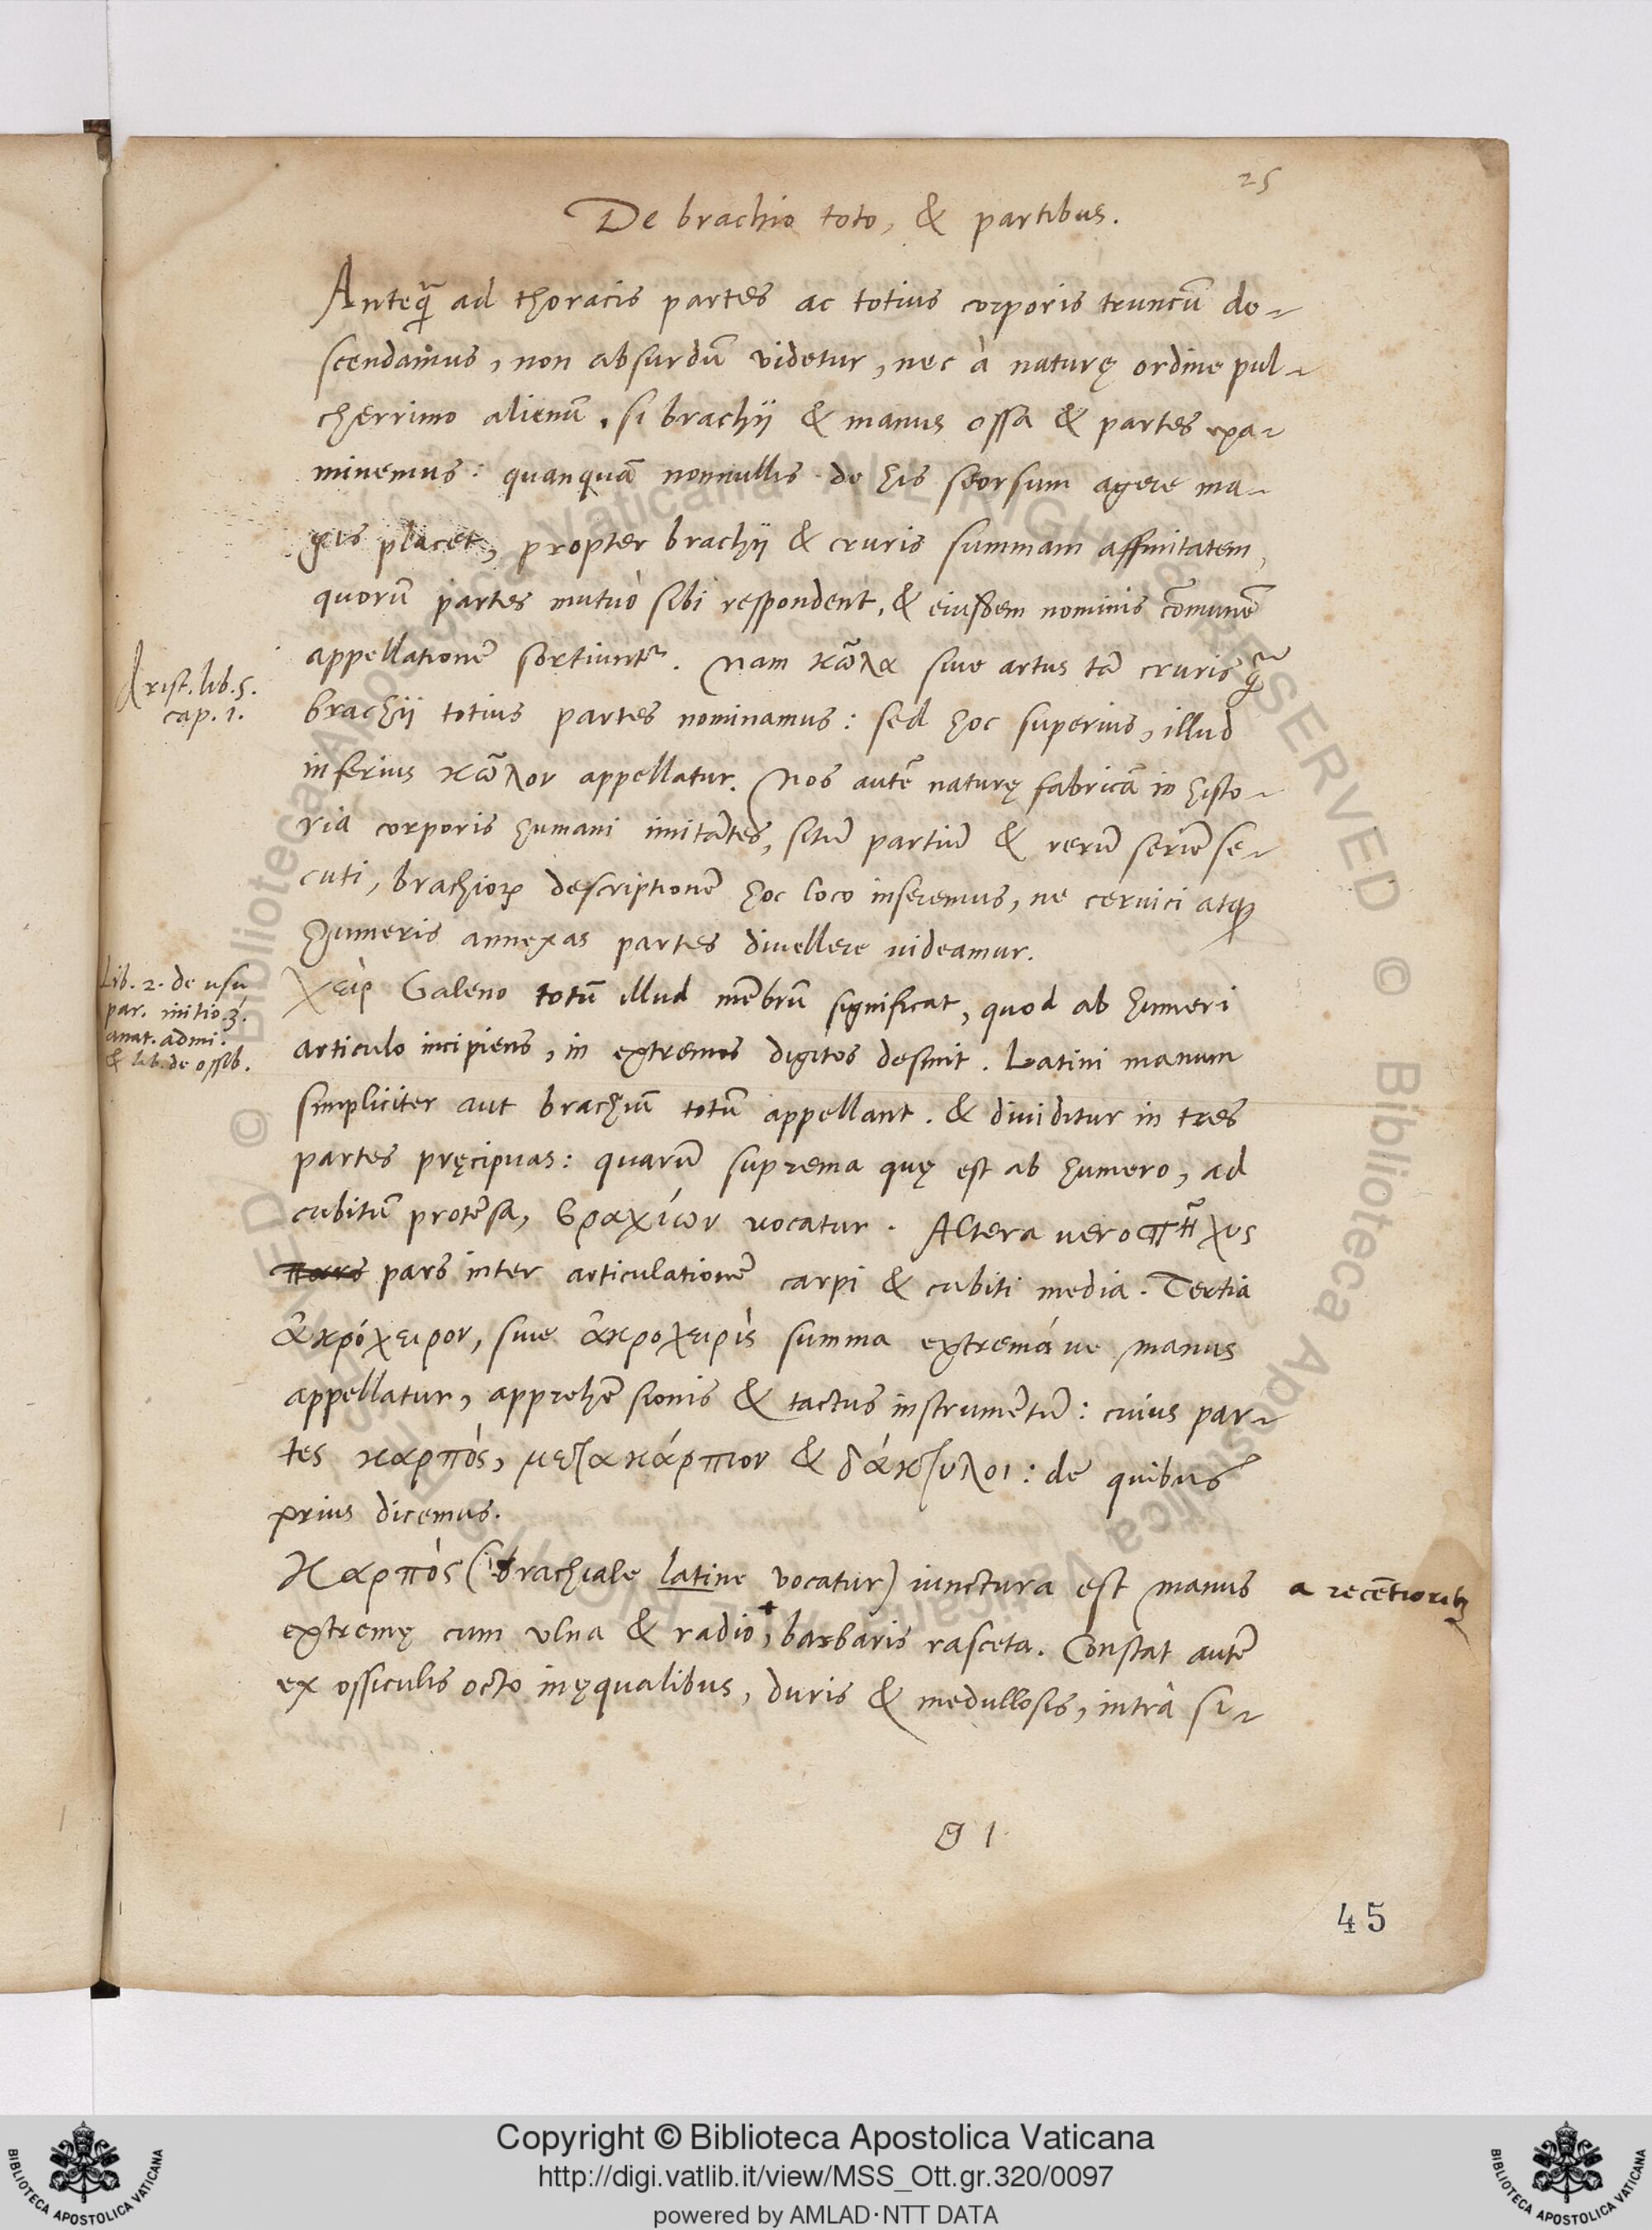 25
De brachio toto, & partibus.
Anteq̃ ad thoracis partes ac totius corporis truncũ de-
scendamus, non absurdũ videtur, nec à naturę ordine pul-
cherrimo alienũ, si brachij & manus ossa & partes exa-
minemus: quanquã nonnullis de his seorsum agere ma-
gis placet, propter brachij & cruris summam affinitatem,
quorũ partes mutuò sibi respondent, & eiusdem nominis cõmunẽ
appellationẽ sortiuntᷣ. Nam κῶλα siue artus tã cruris q̃
Arist. lib. 5.
cap. 1.
brachij totius partes nominamus: sed hoc superius, illud
inferius κῶλον appellatur. Nos autẽ naturę fabricã in histo-
ria corporis humani imitãtes, sitũ partiũ & rerũ seriẽ se-
cuti, brachioꝝ descriptionẽ hoc loco inseremus, ne ceruici atqꝫ
humeris annexas partes diuellere uideamur.
Lib. 2. de usu
par. initio. 3.
anat. admi.
& lib. de ossib.
χεὶρ Galeno totũ illud mẽbrũ significat, quod ab humeri
articulo incipiens, in extremos digitos desinit. Latini manum
simpliciter aut brachiũ totũ appellant. & diuiditur in tres
partes pręcipuas: quarũ suprema quę est ab humero, ad
cubitũ protẽsa, βραχίων uocatur. Altera uero πῆχυς
pars pars inter articulationẽ carpi & cubiti media. Tertia
ἀκρόχειρον, siue ἀκροχειρὶς summa extremáue manus
appellatur, apprehẽsionis & tactus instrumẽtũ: cuius par-
tes καρπὸς, μετακάρπιον & δάκτυλοι: de quibus
prius dicemus.
Καρπὸς (brachiale latine vocatur) iunctura est manus
a recẽtioribꝫ
extremę cum ulna & radio, + barbaris rasceta. Constat autẽ
ex ossiculis octo inęqualibus, duris & medullosis, intrà si-
g 1
45
© Biblioteca Apostolica Vaticana ALL RIGHTS RESERVED
Copyright © Biblioteca Apostolica Vaticana
http://digi.vatlib.it/view/MSS_Ott.gr.320/0097
powered by AMLAD·NTT DATA
BIBLIOTECA APOSTOLICA VATICANA
BIBLIOTECA APOSTOLICA VATICANA